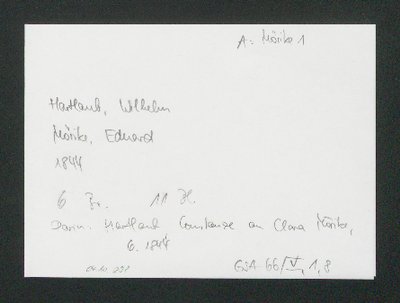 A: Mörike 1
Hartlaub, Wilhelm
Mörike, Eduard
1844
6 Br. 11 Bl.
Darin: Hartlaub Constanze an Clara Mörike,
6. 1844
GSA 66/V, 1,8